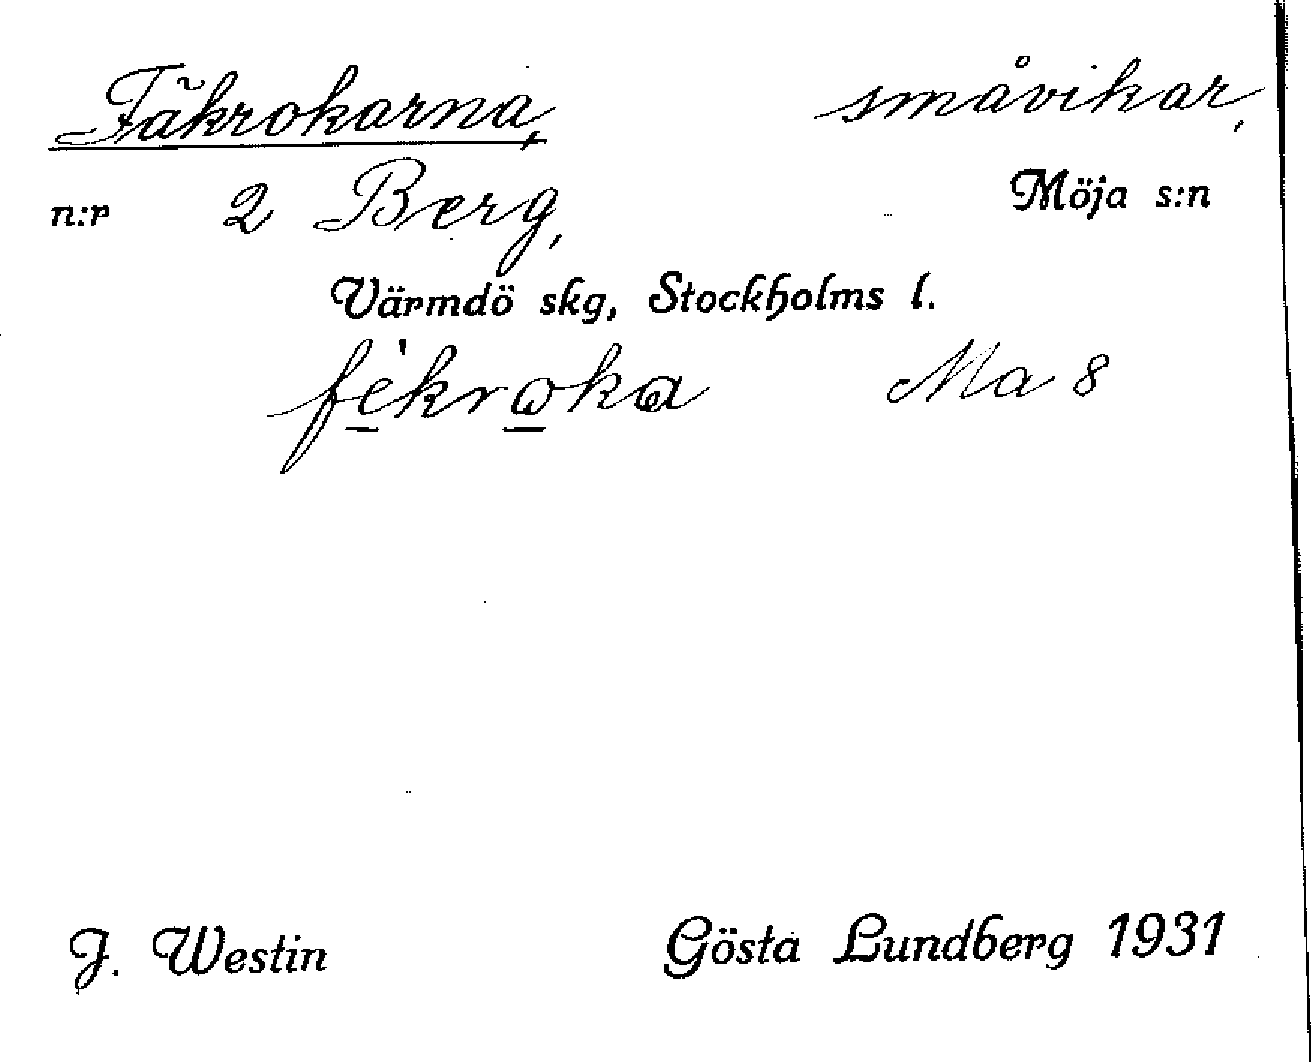 Fäkrokarna, småvikar,
n:r 2 Berg, Möja s:n
Värmdö skg, Stockholms l.
fè̱krω̱ka Ma 8
J. Westin Gösta Lundberg 1931